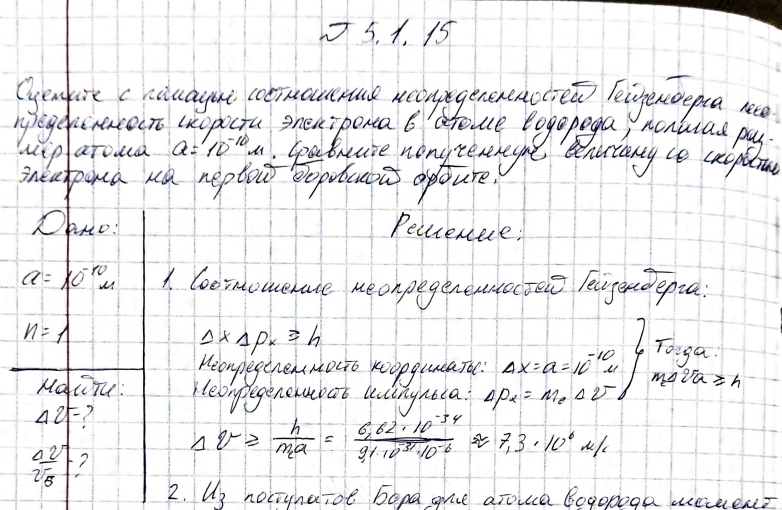 № 5.1.15
Оцените с помощью соотношения неопределенностей Гейзенберга нео-
пределенность скорости электрона в атоме водорода, полагая раз-
мер атома a = 10⁻¹⁰ м. Сравните полученную величину со скоростью
электрона на первой боровской орбите.
Дано:
a = 10⁻¹⁰ м
n = 1
Найти:
Δv - ?
Δv/v_Б - ?
Решение:
1. Соотношение неопределенностей Гейзенберга:
Δx Δpₓ ≥ h
Неопределенность координаты: Δx = a = 10⁻¹⁰ м
Неопределенность импульса: Δpₓ = mₑ Δv
Тогда:
mₑΔva ≥ h
Δv ≥ h/mₑa = 6,62 · 10⁻³⁴/9,1 · 10⁻³¹ · 10⁻⁶ ≈ 7,3 · 10⁶ м/с
2. Из постулатов Бора для атома водорода момент